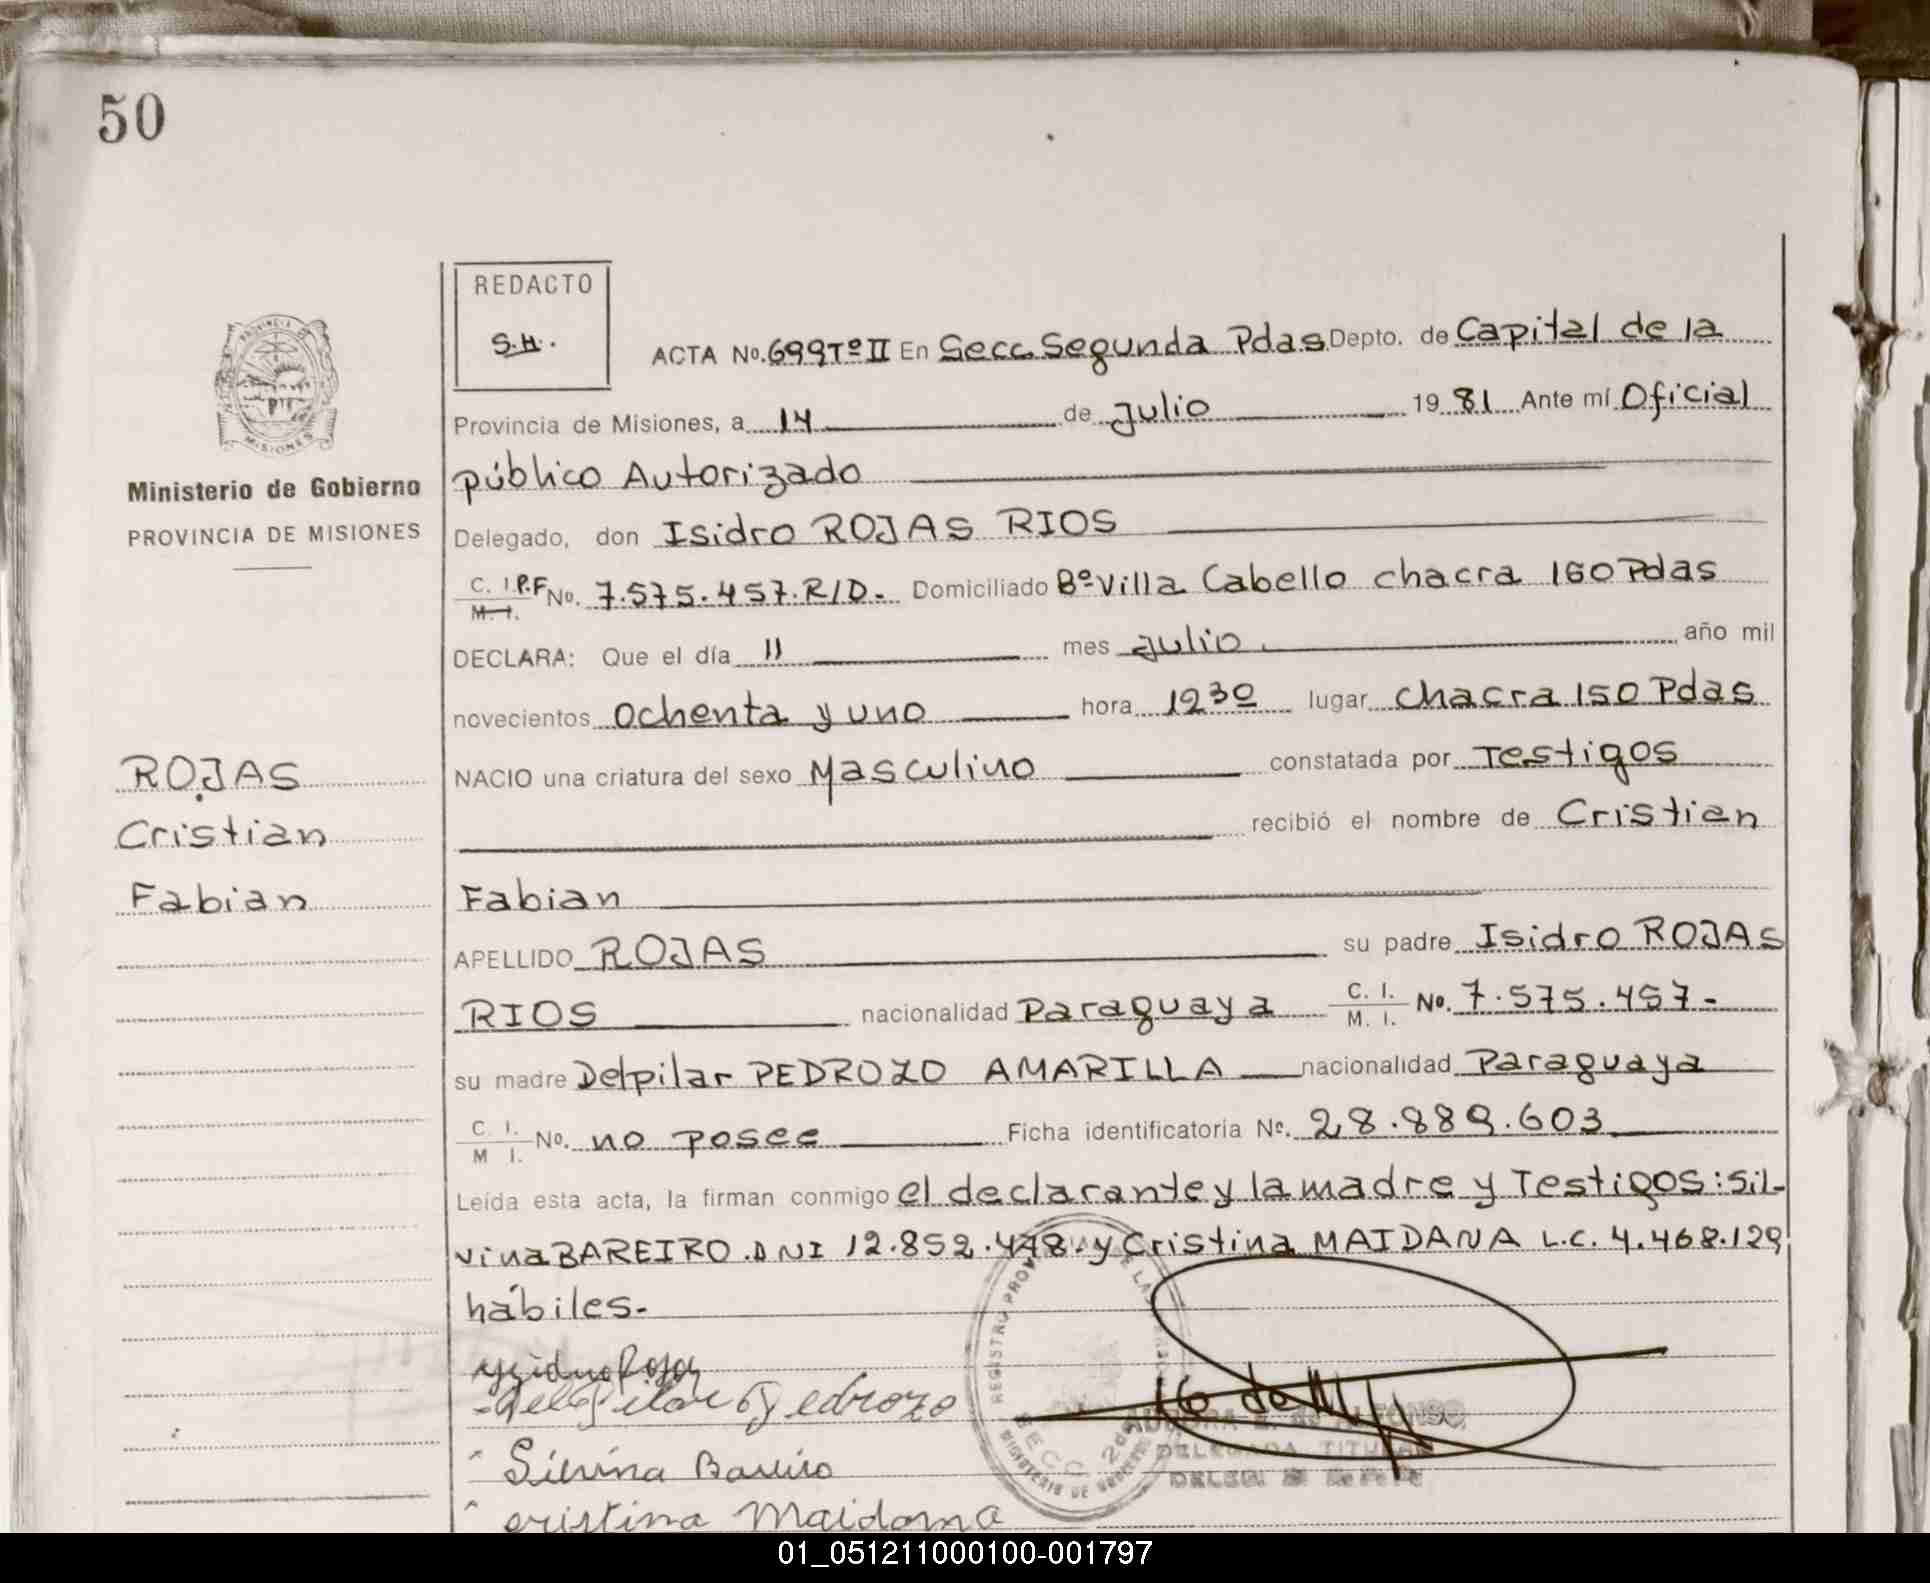 50
REDACTO
S.H.
PROVINCIA DE
MISIONES
ACTA No. 699 Tº II En Secc. Segunda Pdas Depto. de Capital de la
Provincia de Misiones, a 14 de Julio 19 81 Ante mí Oficial
Ministerio de Gobierno
PROVINCIA DE MISIONES
público Autorizado
Delegado, don Isidro ROJAS RIOS
C. I. P.F M. I. No. 7.575.457. R/D. Domiciliado Bº Villa Cabello chacra 150 Pdas
DECLARA: Que el día 11 mes Julio año mil
novecientos Ochenta y uno hora 12 30 lugar chacra 150 Pdas
ROJAS
NACIO una criatura del sexo Masculino constatada por Testigos
Cristian
recibió el nombre de Cristian
Fabian
Fabian
APELLIDO ROJAS su padre Isidro ROJAS
RIOS nacionalidad Paraguaya C. I. M. I. No. 7.575.457-
su madre Delpilar PEDROZO AMARILLA nacionalidad Paraguaya
C. I. M I. No. no posee Ficha identificatoria No. 28.889.603
Leída esta acta, la firman conmigo el declarante y la madre y Testigos: Sil-
vina BAREIRO. DNI 12.852.478. y Cristina MAIDANA L.C. 4.468.129
hábiles.-
Ysidro Rojas
Del Pilar Pedrozo
Silvina Bareiro
cristina Maidana
REGISTRO PROV DE LAS
SECC. 2da
MINISTERIO DE GOBIERNO
DELEGADA TITULAR
01_051211000100-001797